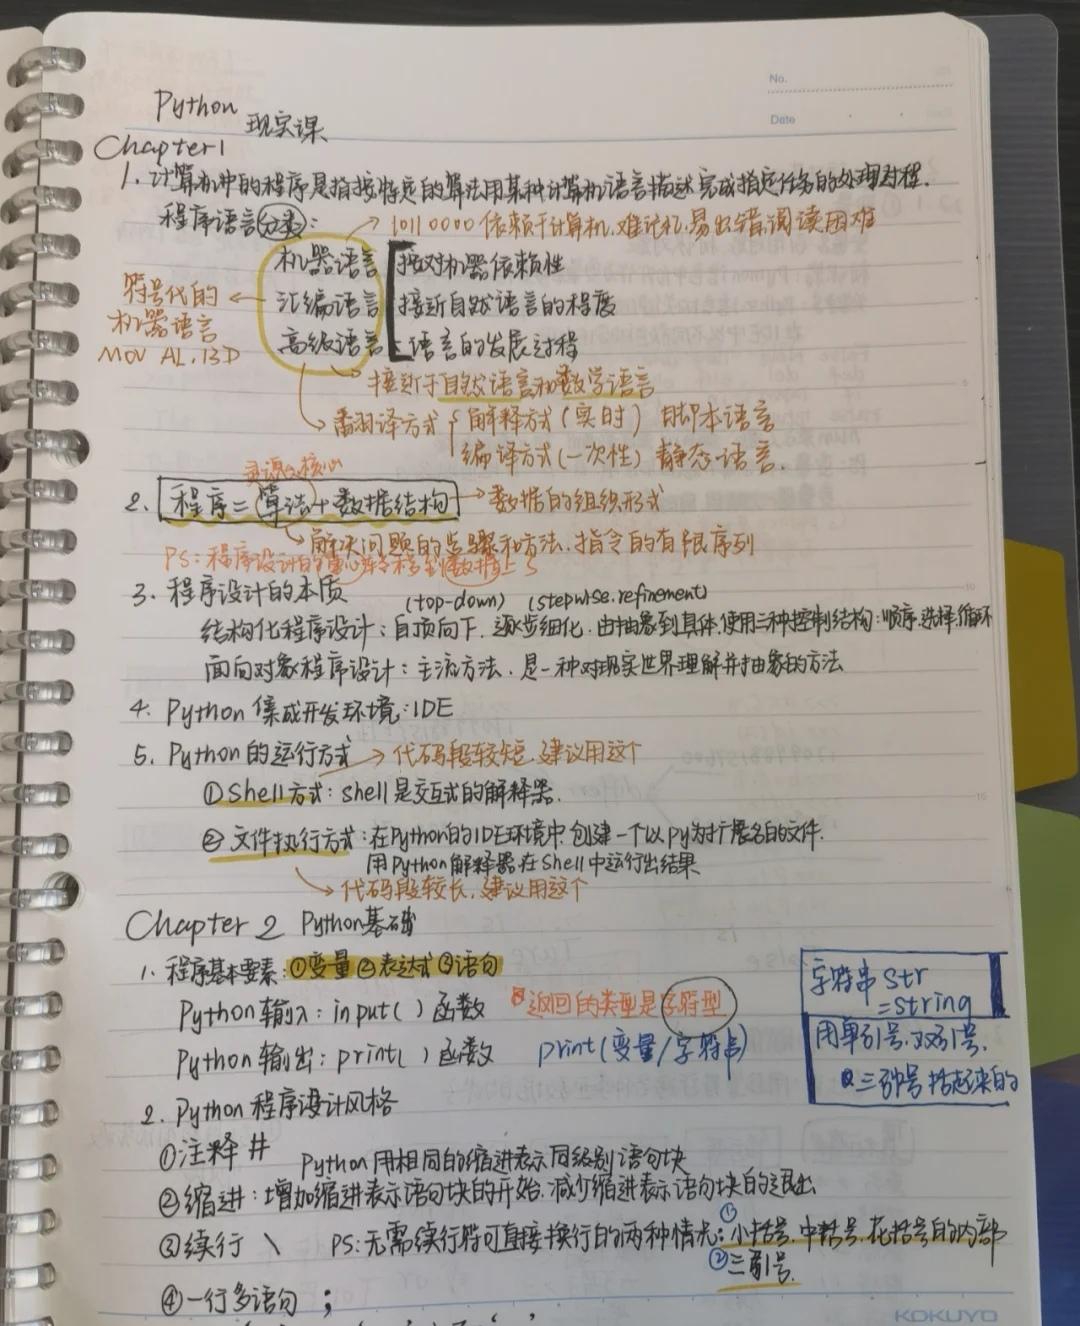 No.
Date
Python 现实课
Chapter1
1. 计算机中的程序是指按特定的算法用某种计算机语言描述完成指定任务的处理过程.
程序语言分类:
→ 10110000 依赖于计算机,难记忆,易出错,阅读困难
机器语言 按对机器依赖性
符号代的
机器语言
MOV AL,13D
汇编语言 接近自然语言的程度
高级语言 语言的发展过程
接近于自然语言和数学语言
翻译方式 解释方式(实时) 用脚本语言
编译方式(一次性) 静态语言.
灵魂 核心
2. 程序=算法+数据结构 → 数据的组织形式
解决问题的步骤和方法,指令的有限序列
PS:程序设计的重心 到 数据上
3. 程序设计的本质 (top-down) (stepwise.refinement)
结构化程序设计:自顶向下,逐步细化,由抽象到具体,使用三种控制结构:顺序,选择,循环
面向对象程序设计:主流方法,是一种对现实世界理解并抽象的方法
4. Python 集成开发环境:IDE
5. Python的运行方式 → 代码段较短,建议用这个
①Shell方式:shell是交互式的解释器.
② 文件执行方式:在Python的IDE环境中,创建一个以py为扩展名的文件.
用Python解释器在Shell中运行出结果
代码段较长,建议用这个
Chapter 2 Python基础
1. 程序基本要素:①变量②表达式③语句
Python 输入:input( )函数 返回的类型是字符型
Python 输出:print( )函数 print(变量/字符串)
字符串 str
=string
用单引号,双引号,
三引号括起来的
2. Python 程序设计风格
①注释 # Python用相同的缩进表示同级别语句块
②缩进:增加缩进表示语句块的开始,减少缩进表示语句块的退出
③续行 \ PS:无需续行符可直接换行的两种情况:①小括号,中括号,花括号的内部
②三引号.
④一行多语句 ;
KOKUYO